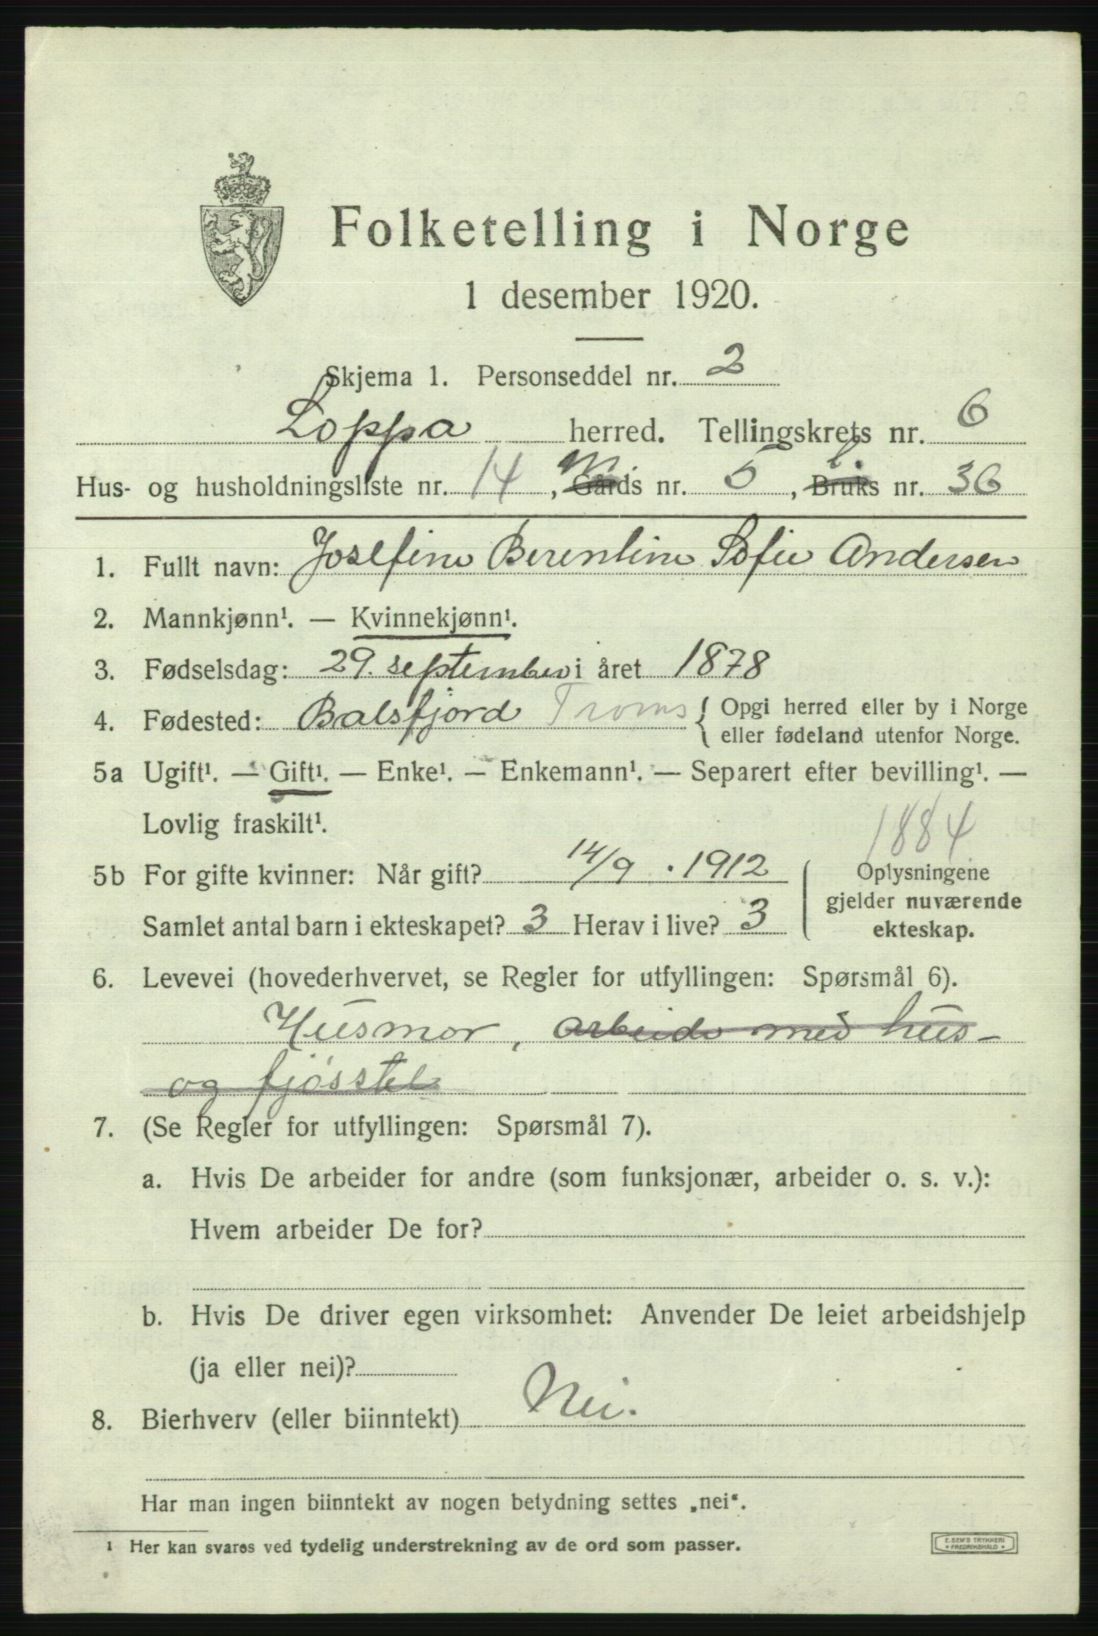 Folketelling i Norge
1 desember 1920.
Skjema 1. Personseddel nr. 2
Loppa herred. Tellingskrets nr. 6
Hus- og husholdningsliste nr. 14, m Gårds nr. 5, b Bruks nr. 36
1. Fullt navn: Josefine Berentine Sofie Andersen
2. Mannkjønn¹. — Kvinnekjønn¹.
3. Fødselsdag: 29. september i året 1878
4. Fødested: Balsfjord Troms { Opgi herred eller by i Norge
eller fødeland utenfor Norge.
5a Ugift¹. — Gift¹. — Enke¹. — Enkemann¹. — Separert efter bevilling¹. —
Lovlig fraskilt¹.
1884
5b For gifte kvinner: Når gift? 14/9 . 1912
Samlet antal barn i ekteskapet? 3 Herav i live? 3
Oplysningene
gjelder nuværende
ekteskap.
6. Levevei (hovederhvervet, se Regler for utfyllingen: Spørsmål 6).
Husmor, arbeide med hus-
og fjøsstel
7. (Se Regler for utfyllingen: Spørsmål 7).
a. Hvis De arbeider for andre (som funksjonær, arbeider o. s. v.):
Hvem arbeider De for?
b. Hvis De driver egen virksomhet: Anvender De leiet arbeidshjelp
(ja eller nei)?
8. Bierhverv (eller biinntekt) Nei.
Har man ingen biinntekt av nogen betydning settes „nei“.
¹ Her kan svares ved tydelig understrekning av de ord som passer.
E. SEM'S TRYKKERI
FREDRIKSHALD